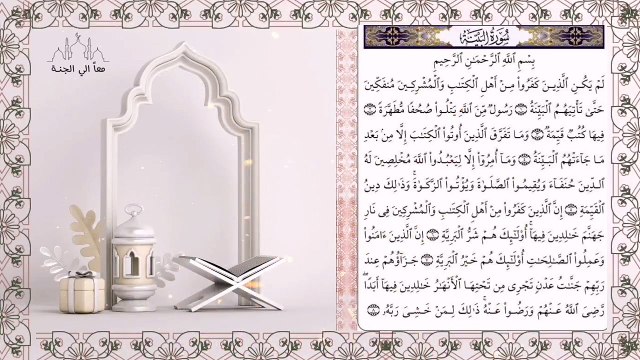 معاً الي الجنة
سُورَةُ البَيِّنَةِ
بِسْمِ اللَّهِ الرَّحْمَٰنِ الرَّحِيمِ
لَمْ يَكُنِ الَّذِينَ كَفَرُوا۟ مِنْ أَهْلِ الْكِتَٰبِ وَالْمُشْرِكِينَ مُنفَكِّينَ
حَتَّىٰ تَأْتِيَهُمُ الْبَيِّنَةُ ۝ رَسُولٌ مِّنَ اللَّهِ يَتْلُوا۟ صُحُفًا مُّطَهَّرَةً ۝
فِيهَا كُتُبٌ قَيِّمَةٌ ۝ وَمَا تَفَرَّقَ الَّذِينَ أُوتُوا۟ الْكِتَٰبَ إِلَّا مِنۢ بَعْدِ
مَا جَآءَتْهُمُ الْبَيِّنَةُ ۝ وَمَآ أُمِرُوٓا۟ إِلَّا لِيَعْبُدُوا۟ اللَّهَ مُخْلِصِينَ لَهُ
الدِّينَ حُنَفَآءَ وَيُقِيمُوا۟ الصَّلَوٰةَ وَيُؤْتُوا۟ الزَّكَوٰةَ ۚ وَذَٰلِكَ دِينُ
الْقَيِّمَةِ ۝ إِنَّ الَّذِينَ كَفَرُوا۟ مِنْ أَهْلِ الْكِتَٰبِ وَالْمُشْرِكِينَ فِى نَارِ
جَهَنَّمَ خَٰلِدِينَ فِيهَآ ۚ أُو۟لَٰٓئِكَ هُمْ شَرُّ الْبَرِيَّةِ ۝ إِنَّ الَّذِينَ ءَامَنُوا۟
وَعَمِلُوا۟ الصَّٰلِحَٰتِ أُو۟لَٰٓئِكَ هُمْ خَيْرُ الْبَرِيَّةِ ۝ جَزَآؤُهُمْ عِندَ
رَبِّهِمْ جَنَّٰتُ عَدْنٍ تَجْرِى مِن تَحْتِهَا الْأَنْهَٰرُ خَٰلِدِينَ فِيهَآ أَبَدًا ۖ
رَّضِىَ اللَّهُ عَنْهُمْ وَرَضُوا۟ عَنْهُ ۚ ذَٰلِكَ لِمَنْ خَشِىَ رَبَّهُۥ ۝